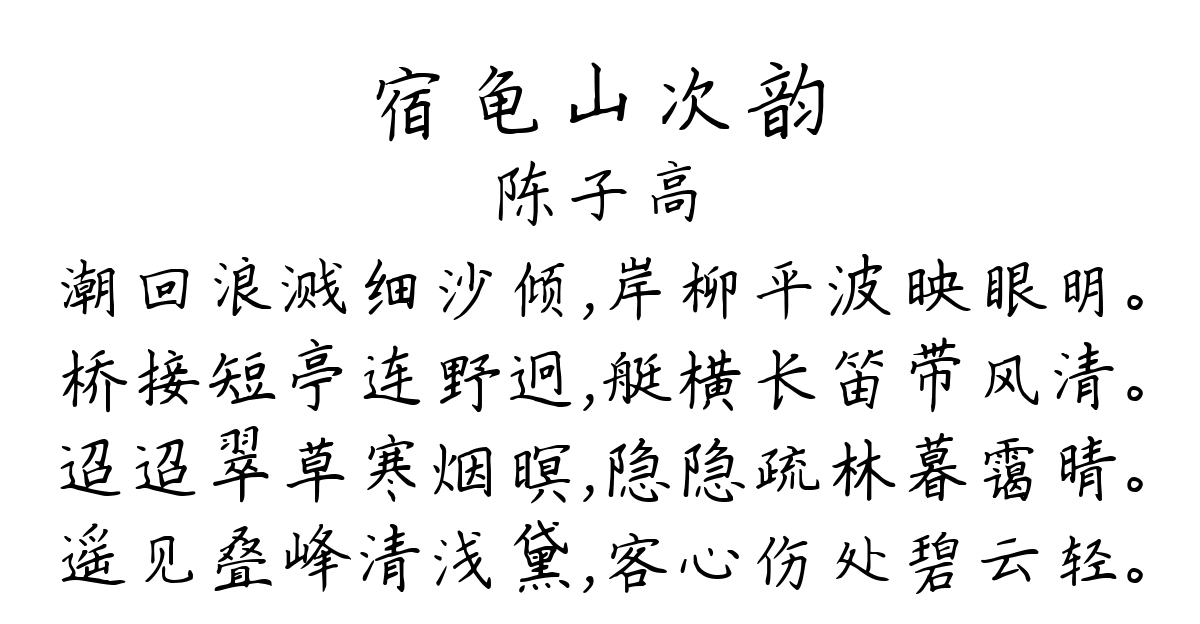 宿龟山次韵
陈子高
潮回浪溅细沙倾,岸柳平波映眼明。
桥接短亭连野迥,艇横长笛带风清。
迢迢翠草寒烟暝,隐隐疏林暮霭晴。
遥见叠峰清浅黛,客心伤处碧云轻。